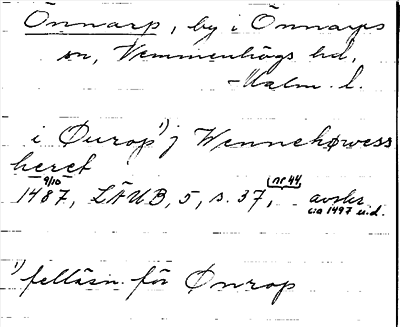 Önnarp, by i Önnarps
sn, Vemmenhögs hd,
Malm. l.
i Øurop 1) j Wennehøwess
heret
9/10 1487, LÄUB, 5, s. 37, (nr 44) avskr. ca 1497 u.d.
1) felläsn. för Ønrop